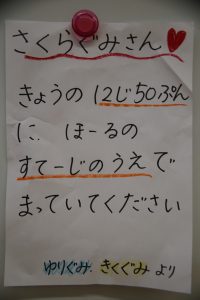 さくらぐみさん♥
きょうの 12じ50ぷん
に、ほーるの
すてーじのうえで
まっていてください
ゆりぐみ、きくぐみ より